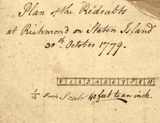 Plan of the Redoubts
at Richmond on Staten Island
30th October 1779.
Scale 40 feet to an inch.